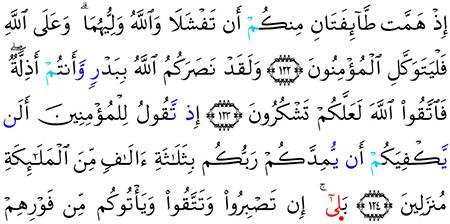 إِذْ هَمَّت طَّآئِفَتَانِ مِنكُمْ أَن تَفْشَلَا وَٱللَّهُ وَلِيُّهُمَا ۗ وَعَلَى ٱللَّهِ
فَلْيَتَوَكَّلِ ٱلْمُؤْمِنُونَ ﴿١٢٢﴾ وَلَقَدْ نَصَرَكُمُ ٱللَّهُ بِبَدْرٍ وَأَنتُمْ أَذِلَّةٌ ۖ
فَٱتَّقُوا۟ ٱللَّهَ لَعَلَّكُمْ تَشْكُرُونَ ﴿١٢٣﴾ إِذ تَّقُولُ لِلْمُؤْمِنِينَ أَلَن
يَكْفِيَكُمْ أَن يُمِدَّكُمْ رَبُّكُم بِثَلَـٰثَةِ ءَالَـٰفٍ مِّنَ ٱلْمَلَـٰٓئِكَةِ
مُنزَلِينَ ﴿١٢٤﴾ بَلَىٰٓ ۚ إِن تَصْبِرُوا۟ وَتَتَّقُوا۟ وَيَأْتُوكُم مِّن فَوْرِهِمْ